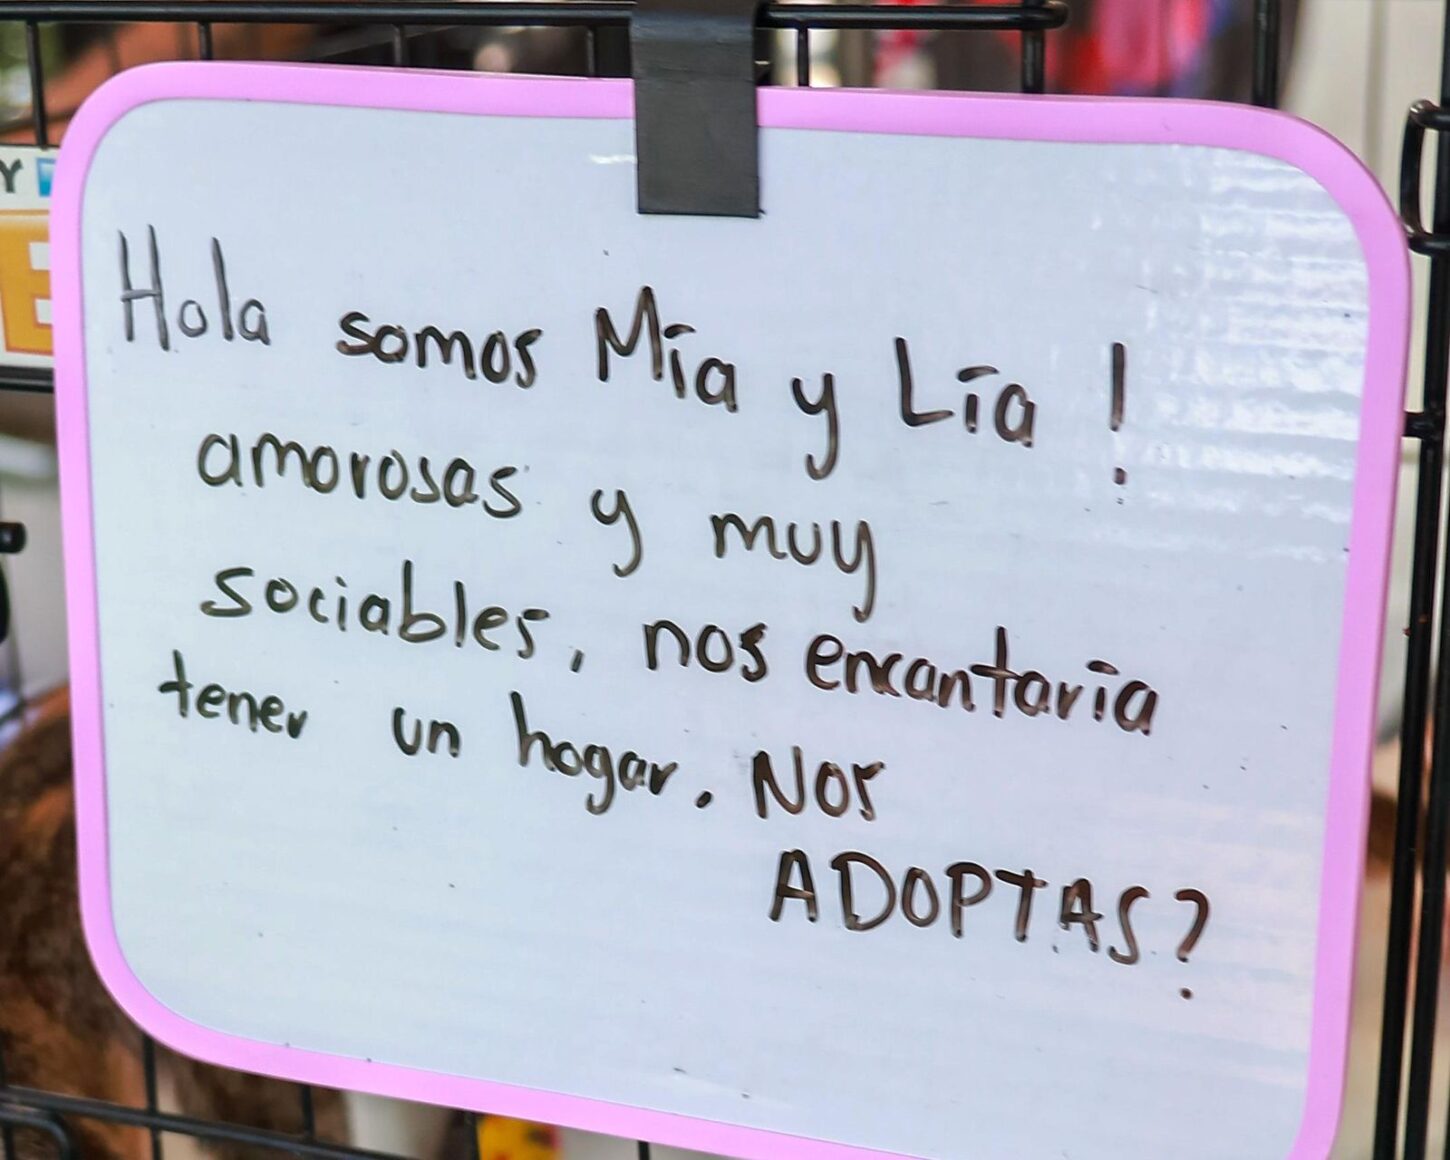 Hola somos Mía y Lía !
amorosas y muy
sociables, nos encantaría
tener un hogar. Nos
ADOPTAS?
Y
E